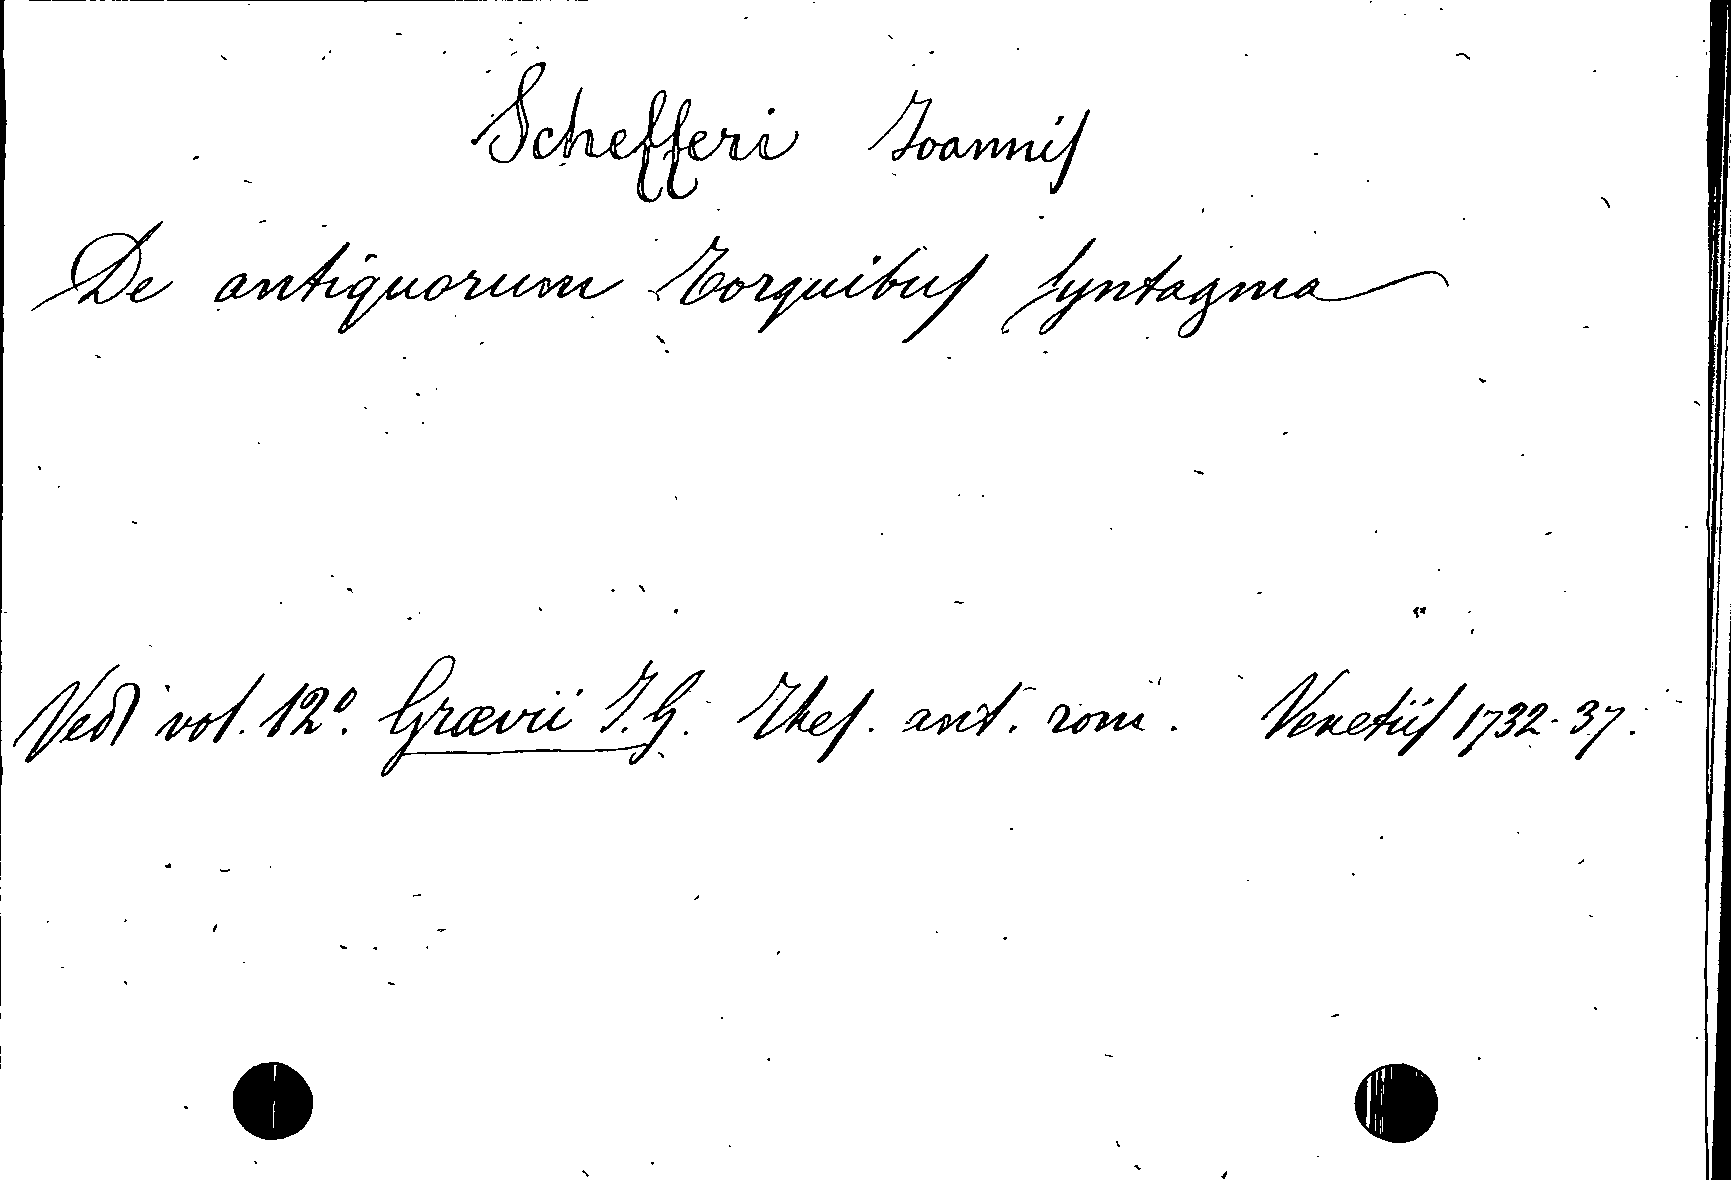 Schefferi Joannis
De antiquorum Torquibus syntagma
Vedi vol. 12º. Grævii J. G. Thes. ant. rom. Venetiis 1732-37.